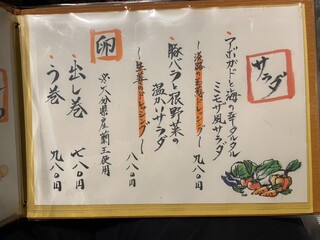 サラダ
アボガドと海の幸タルタル
ミモザ風サラダ
〜淡路の玉葱ドレッシング〜
九八〇円
豚バラと根野菜の
温かいサラダ
〜生姜のドレッシング〜
八八〇円
卵
※大分県産蘭王使用
だし巻
七八〇円
う巻
九八〇円